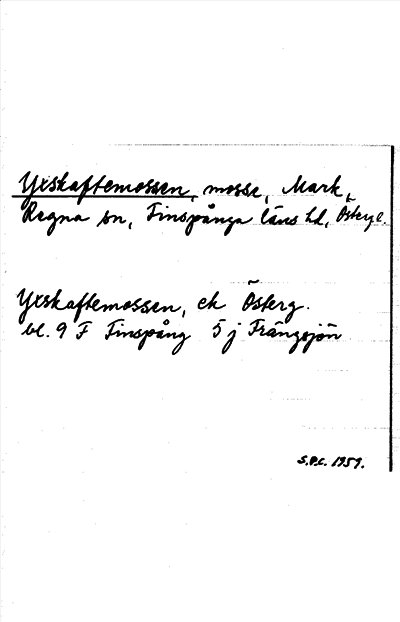 Yxskaftemossen, mosse, Mark,
Regna sn, Finspånga läns hd, Östergl.
Yxskaftemossen, ek Österg.
bl. 9 F Finspång 5 j Frängsjön
S.P.C. 1959.